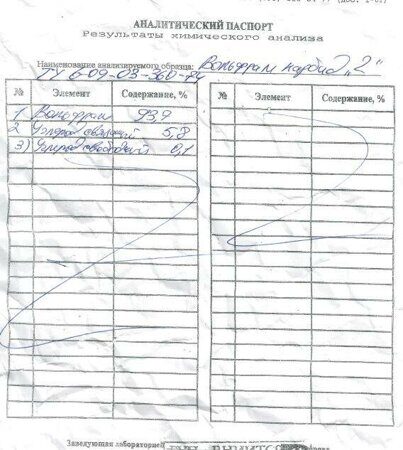 АНАЛИТИЧЕСКИЙ ПАСПОРТ
Результаты химического анализа
Наименование анализируемого образца: Вольфрам карбид „2"
ТУ 6-09-03-360-84
№ Элемент Содержание, %
1 Вольфрам 93,9
2 Углерод связаный 5,8
3) Углерод свободный 0,1
№ Элемент Содержание, %
Заведующая лабораторией